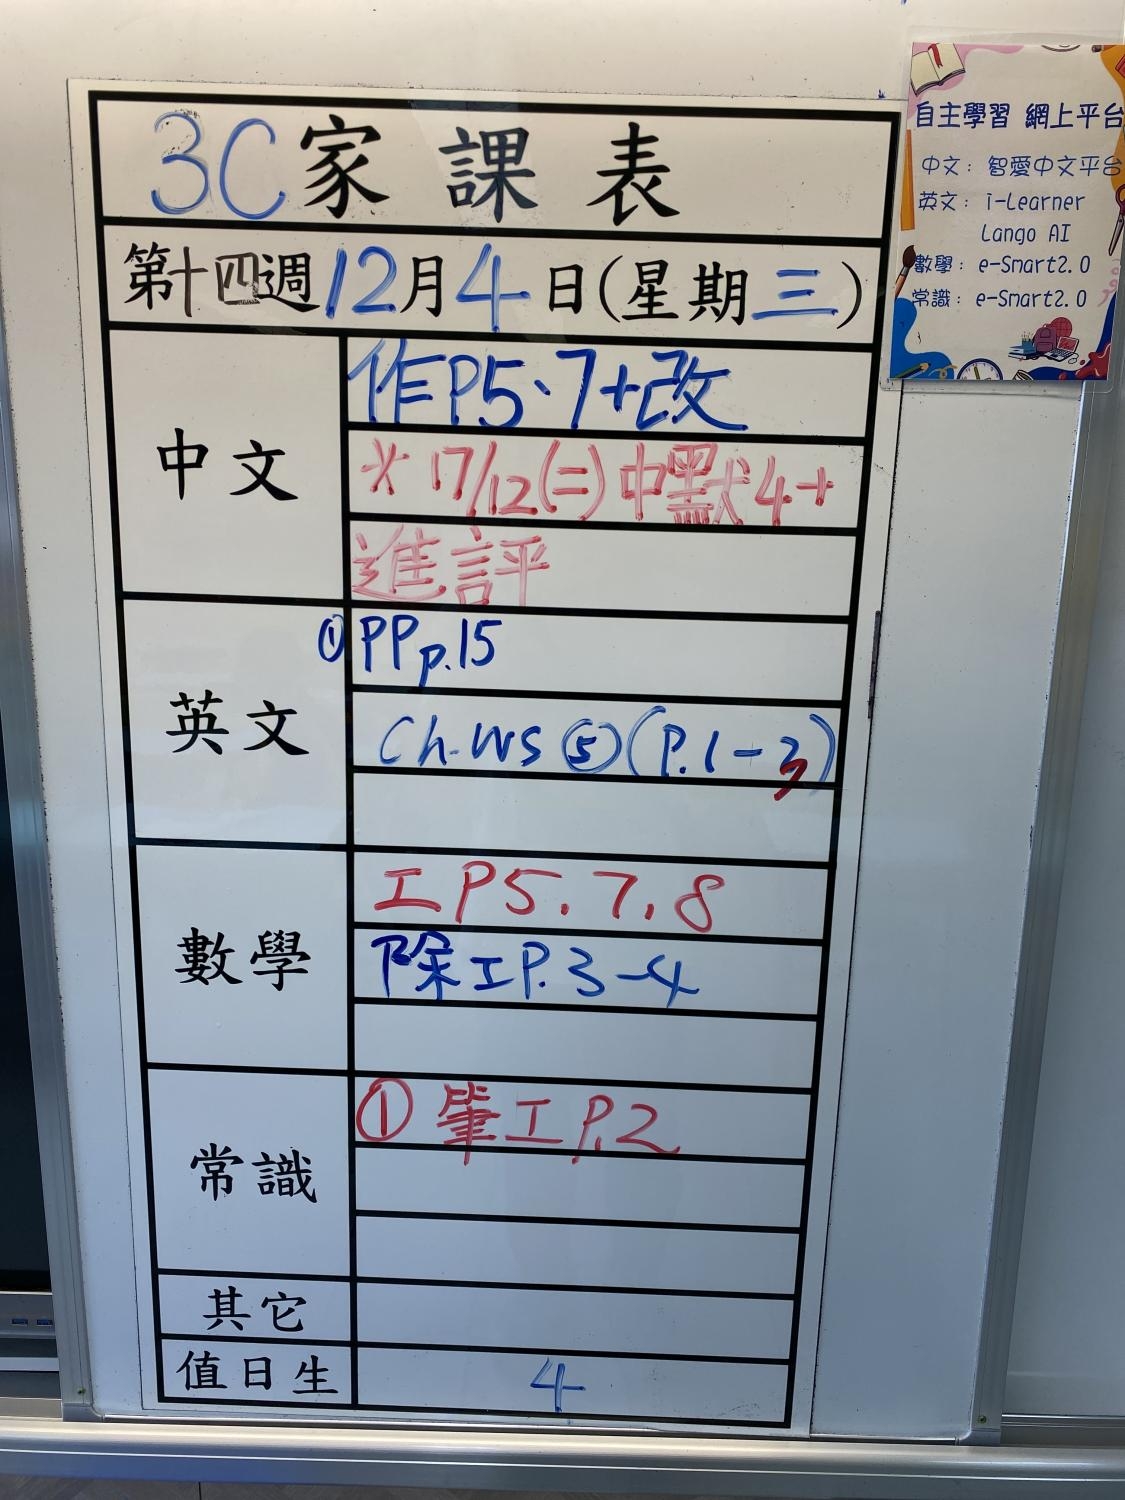 3C家課表
第十四週12月4日(星期三)
中文
作P5、7+改
* 17/12(二)中默4+
進評
英文
① PP p.15
Ch.WS ⑤ (P.1-3)
數學
工P5.7.8
除工P.3-4
常識
① 筆工P.2
其它
值日生
4
自主學習 網上平台
中文：智愛中文平台
英文：i-Learner
Lango AI
數學：e-Smart2.0
常識：e-Smart2.0